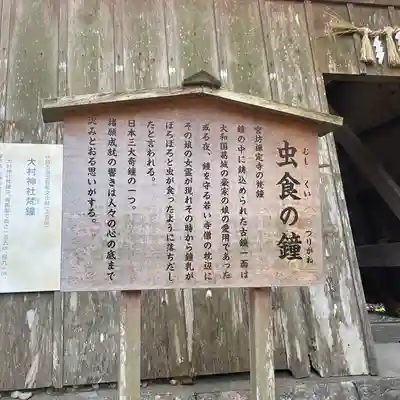 虫食の鐘
むし くい つりがね
宮坊禅定寺の梵鐘
鐘の中に鋳込められた古鏡一面は
大和国葛城の豪家の娘の愛用であった
或る夜、鐘を守る若い寺僧の枕辺に
その娘の女霊が現れその時から鐘乳が
ぼろぼろと虫が食ったように落ちだし
たと言われる。
日本三大奇鐘の一つ。
諸願成就の響きは人々の心の底まで
沈みとおる思いがする。
大村神社梵鐘